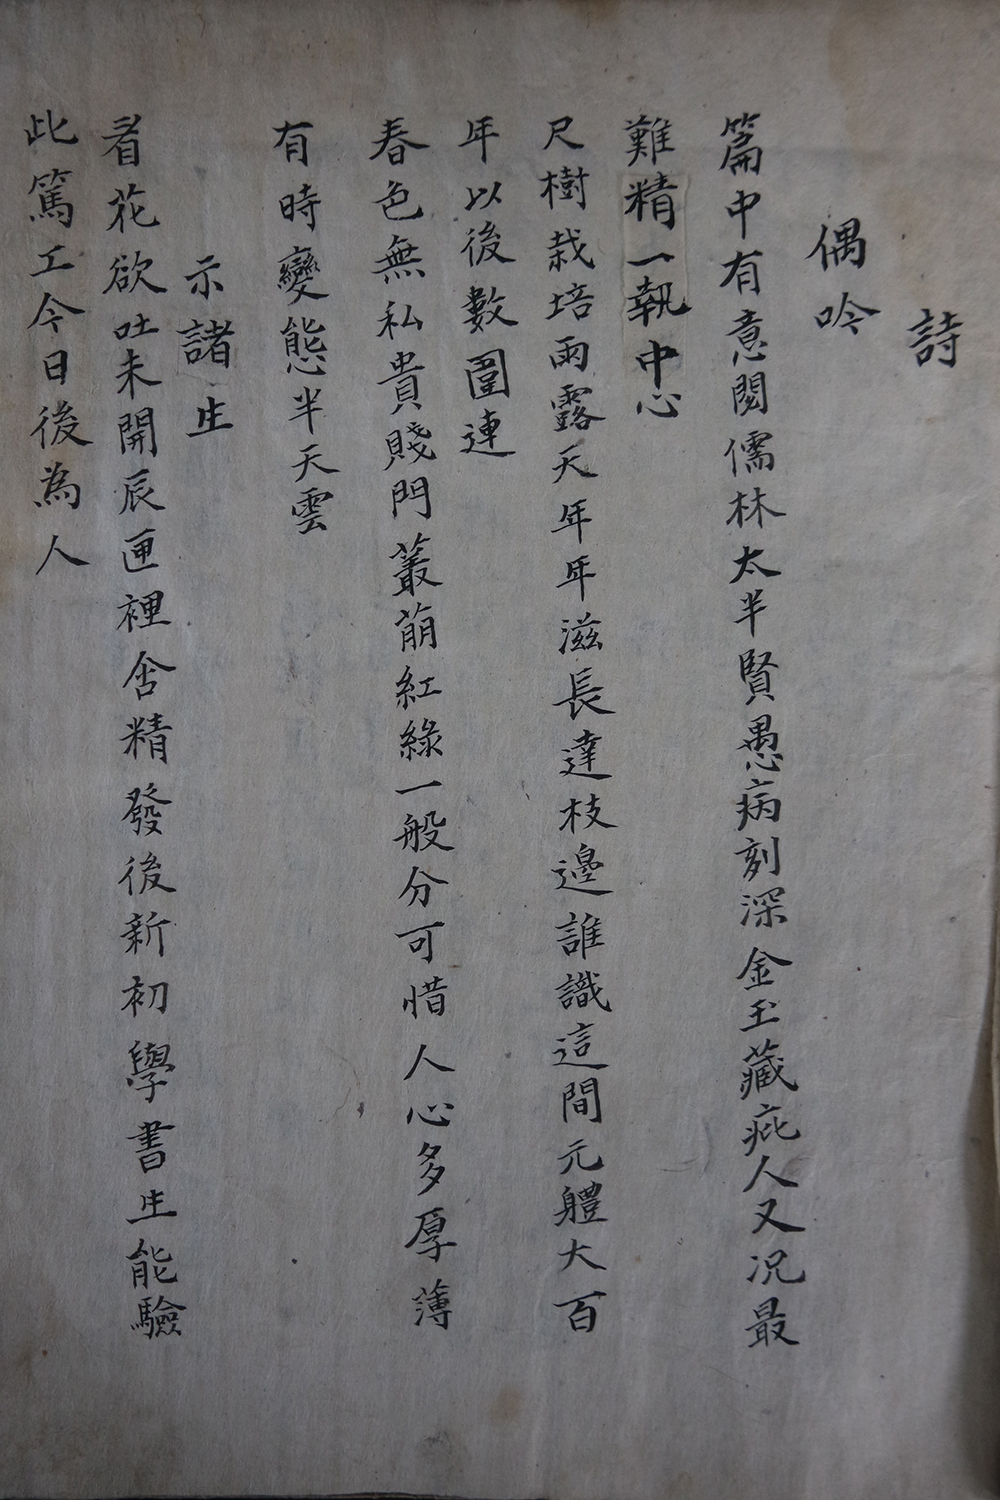 詩
偶吟
篇中有意閱儒林太半賢愚病刻深金玉藏疵人又况最
難精一執中心
尺樹栽培雨露天年年滋長達枝邊誰識這間元軆大百
年以後數圍連
春色無私貴賤門叢萠紅綠一般分可惜人心多厚薄
有時變態半天雲
示諸生
看花欲吐未開辰匣裡含精發後新初學書生能驗
此篤工今日後為人